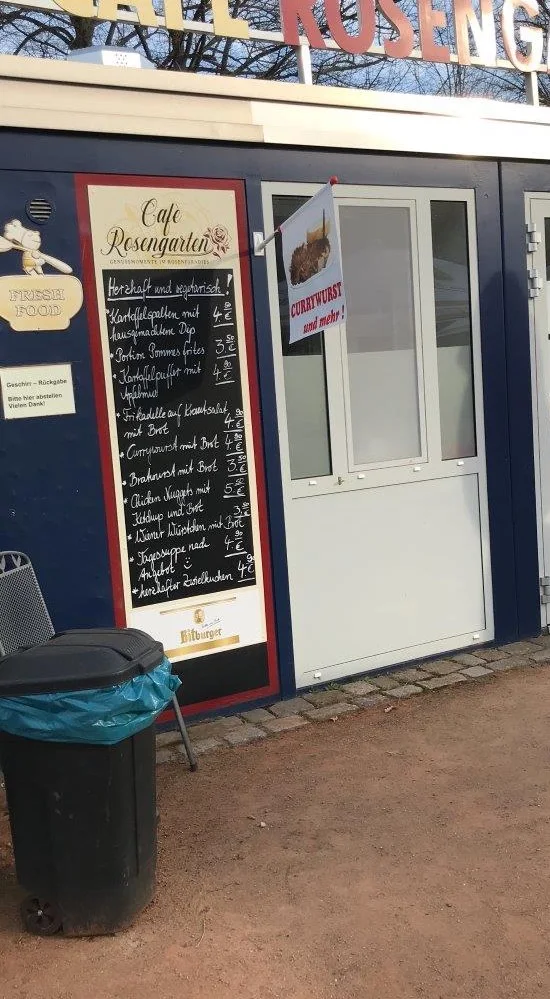 CAFE ROSENG
Café
Rosengarten
GENUSSMOMENTE IM ROSENPARADIES
Herzhaft und vegetarisch!
*Kartoffelspalten mit
hausgemachtem Dip 4.90 €
*Portion Pommes frites 3.50 €
*Kartoffelpuffer mit
Apfelmus 4.90 €
*Frikadelle auf Krautsalat
mit Brot 4.90 €
*Currywurst mit Brot 4.90 €
*Bratwurst mit Brot 3.50 €
*Chicken Nuggets mit
Ketchup und Brot 5.00 €
*Wiener Würstchen mit Brot
*Tagessuppe nach
Angebot 4.90 €
*herzhafter Zwiebelkuchen 4.90 €
Bitburger
CURRYWURST
und mehr!
FRESH
FOOD
Geschirr - Rückgabe
Bitte hier abstellen
Vielen Dank!